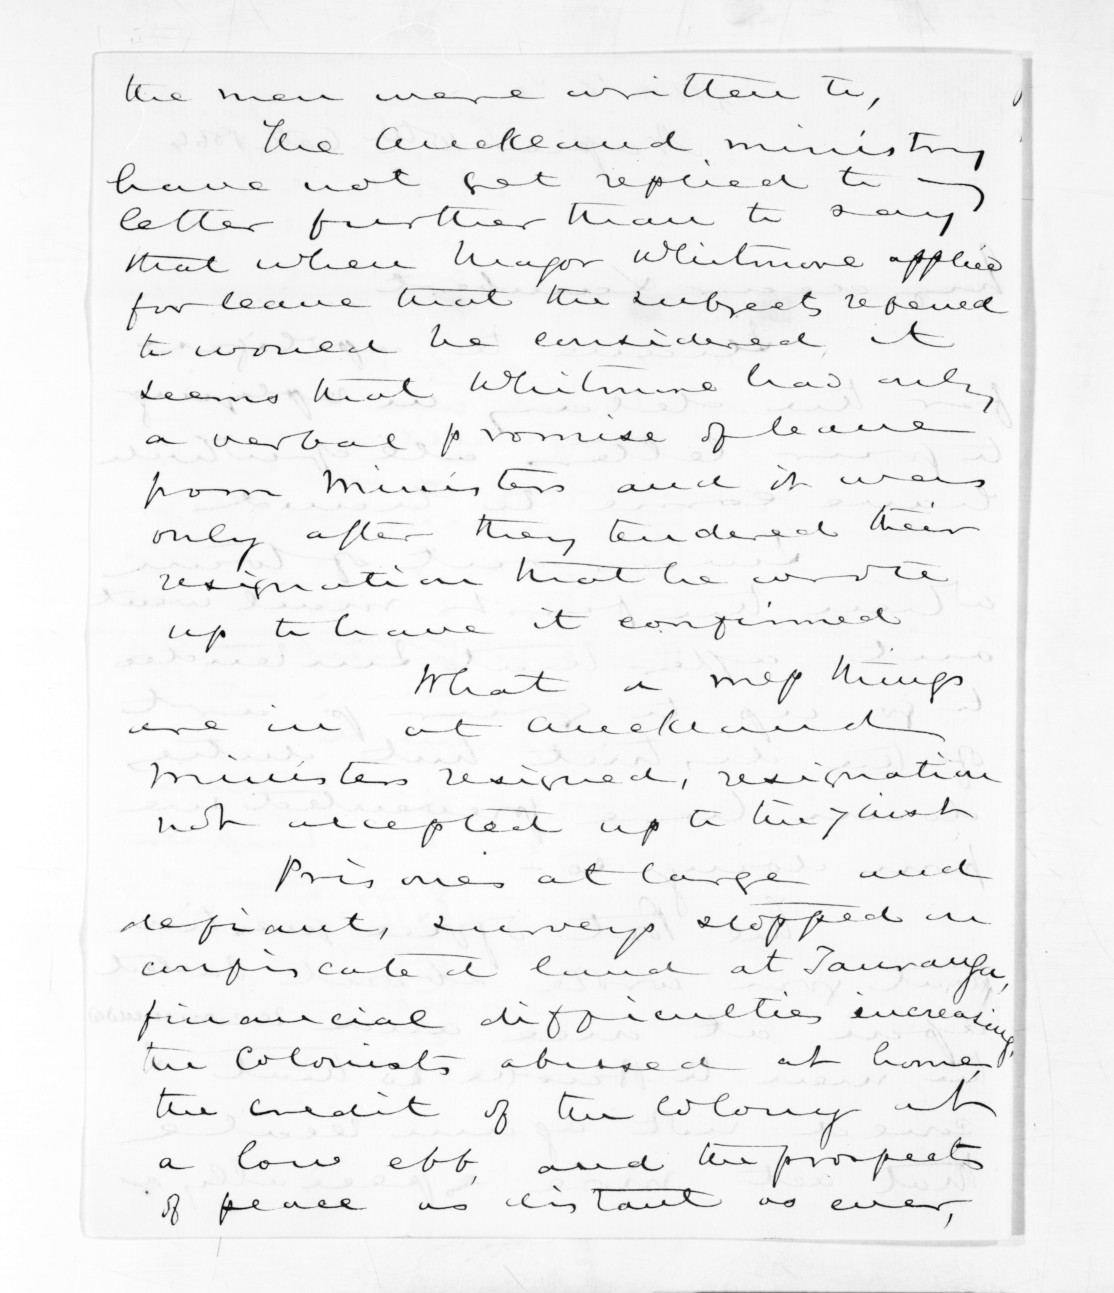 the men were written to,
The Auckland ministry
have not yet replied to my
letter further than to say
that when Major Whitmore applied
for leave that the subjects refened
to would be considered, it
seems that Whitmore had only
a verbal promise of leave
from Ministers and it was
only after they tendered their
resignation that he wrote
up to have it confirmed
What a mess things
are in at Auckland
Ministers resigned, resignation
not accepted up to the 7 inst
Prisones at large and
defiant, surveys stopped on
confiscated land at Tauranga,
financial difficulties increasing,
the Colonists abused at home,
the credit of the Colony at
a low ebb, and the prospects
of peace as distant as ever,